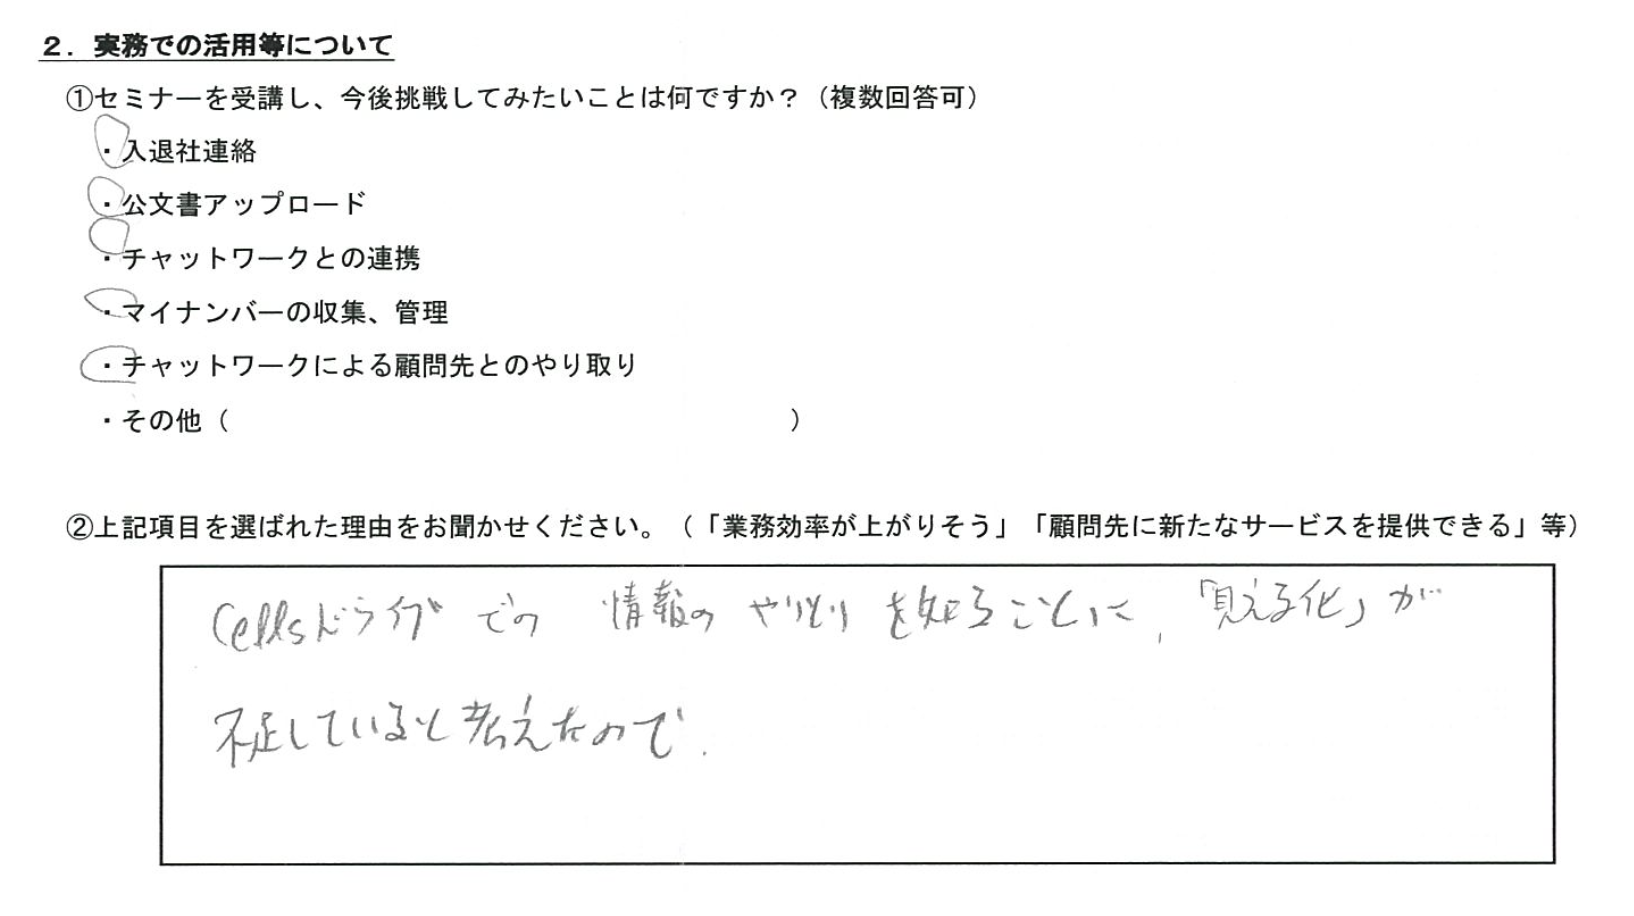 ２．実務での活用等について
①セミナーを受講し、今後挑戦してみたいことは何ですか？（複数回答可）
・入退社連絡
・公文書アップロード
・チャットワークとの連携
・マイナンバーの収集、管理
・チャットワークによる顧問先とのやり取り
・その他（　　　　　　　　　　　　　　　　　　　　）
②上記項目を選ばれた理由をお聞かせください。（「業務効率が上がりそう」「顧問先に新たなサービスを提供できる」等）
Cellsドライブでの 情報の やりとりを知ることに、「見える化」が
不足していると考えたので.